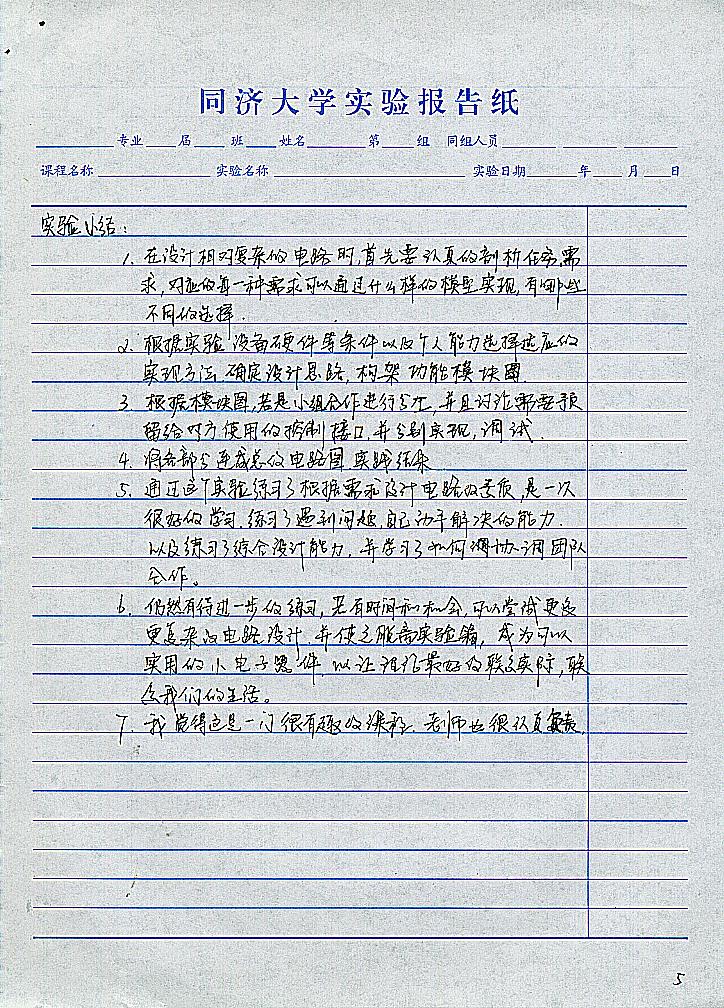 同济大学实验报告纸
专业 届 班 姓名 第 组 同组人员
课程名称 实验名称 实验日期 年 月 日
实验小结：
1. 在设计相对复杂的电路时，首先要认真的剖析任务，需
求，对应的每一种需求可以通过什么样的模型实现，有哪些
不同的选择．
2. 根据实验设备硬件等条件以及个人能力选择适应的
实现方法，确定设计思路，构架功能模块图．
3. 根据模块图，若是小组合作进行分工，并且讨论需要预
留给对方使用的控制接口，并分别实现，调试．
4. 将各部分连成总的电路图 实践结果
5. 通过这个实验练习了根据需求设计电路的素质，是一次
很好的学习，练习了遇到问题，自己动手解决的能力．
以及练习了综合设计能力，并学习了如何协调团队
合作。
6. 仍然有待进一步的练习，若有时间和机会，可以尝试更多
更复杂的电路设计，并使之脱离实验箱，成为可以
实用的小电子器件，以让理论最好的联系实际，联
系我们的生活。
7. 我觉得这是一门很有趣的课程．老师也很认真负责．
5